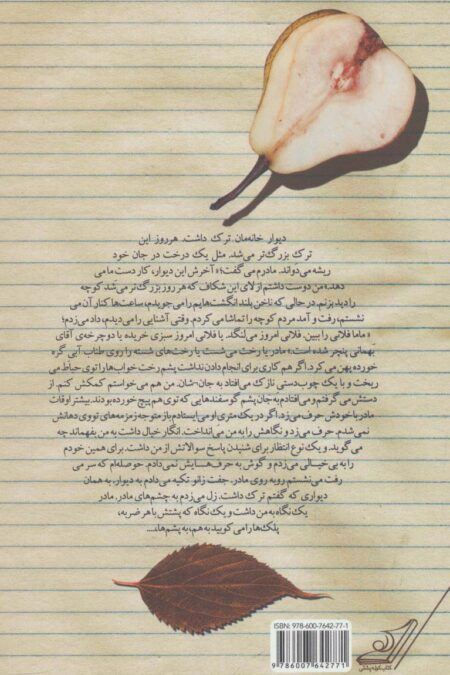 دیوار خانه‌مان ترک داشت. هرروز این
ترک بزرگ‌تر می‌شد. مثل یک درخت در جان خود
ریشه می‌دواند. مادرم می‌گفت؛« آخرش این دیوار، کار دست ما می
دهد.» من دوست داشتم از لای این شکاف که هر روز بزرگ‌تر می‌شد کوچه
را دید بزنم. در حالی که ناخن بلند انگشت‌هایم را می‌جویدم، ساعت‌ها کنار آن می
نشستم، رفت و آمد مردم کوچه را تماشا می کردم. وقتی آشنایی را می‌دیدم، داد می‌زدم؛
« ماما فلانی را ببین. فلانی امروز می‌لنگد. یا فلانی امروز سبزی خریده یا دوچرخه‌ی آقای
بهمانی پنچر شده است.» مادر یا رخت می‌شست یا رخت‌های شسته را روی طناب آبی گره
خورده پهن می‌کرد. اگر هم کاری برای انجام دادن نداشت پشم رخت خواب‌ها را توی حیاط می
ریخت و با یک چوب‌دستی نازک می‌افتاد به جان‌شان. من هم می‌خواستم کمکش کنم. از
دستش می‌گرفتم و می‌افتادم به‌جان پشم گوسفندهایی که توی هم پیچ خورده بودند. بیشتر اوقات
مادر با خودش حرف می‌زد. اگر در یک متری او می‌ایستادم باز متوجه زمزمه‌های تووی دهانش
نمی‌شدم. حرف می‌زد و نگاهش را به من می‌انداخت. انگار خیال داشت به من بفهماند چه
می گوید. و یک نوع انتظار برای شنیدن پاسخ سوالاتش از من داشت. برای همین خودم
را به بی‌خیالی می‌زدم و گوش به حرف‌هـایش نمی‌دادم. حوصله‌ام که سر می
رفت می‌نشستم روبه روی مادر. جفت زانو تکیه می‌دادم به دیوار. به همان
دیواری که گفتم ترک داشت. زل می‌زدم به چشم‌های مادر. مادر
یک نگاه به من داشت و یک نگاه که پشتش با هر ضربه،
پلک‌ها را می کوبید به هم، به پشم‌ها....
ISBN: 978-600-7642-77-1
9 786007 642771
کتاب کوله پشتی